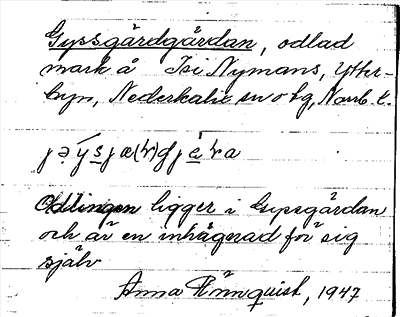 Gyssgårdgårdan, odlad
mark å Isi Nymans, Ytter-
byn, Nederkalix sn o tg, Norrb. l.
Odlingen ligger i Gyssgårdan
och är en inhägnad för sig
själv
Anna Rönnquist, 1947